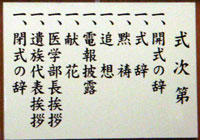 式次第
一、開式の辞
一、式辞
一、黙祷
一、追想
一、電報披露
一、献花
一、医学部長挨拶
一、遺族代表挨拶
一、閉式の辞